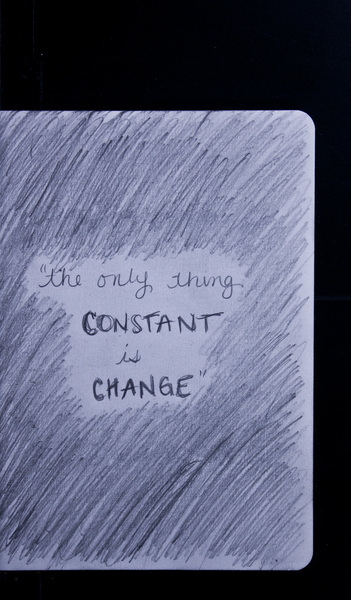 "the only thing
CONSTANT
is
CHANGE"